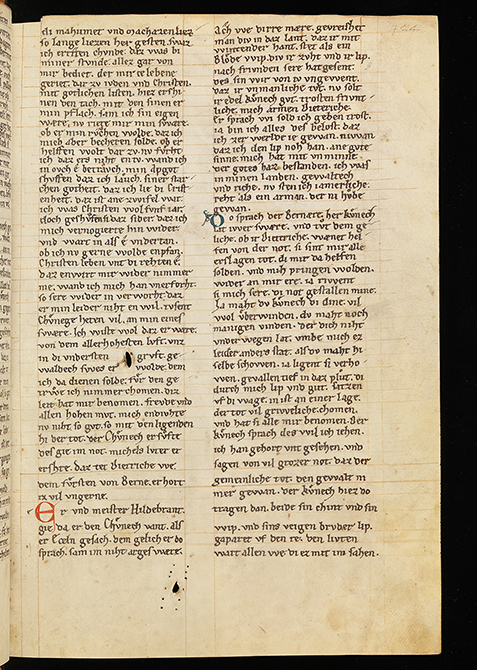 di mahumet vnd machazen liez
so lange liezen her gesten. swaz
ich cristen chvnde. daz was bi
miner stvnde. allez gar von
mir bediet. der mir ee lebene
geriet. daz zv iuden vnd christen.
mit gotlichen listen. hiez ersihi
nen den tach. mit den sinen er
min pflach. sam ich sin eigen
wære. nv riete mir min swære.
ob er min rvchen wolde. daz ich
mich aber becheren solde. ob er
helfen wolt. daz zv nv fvrht
ich daz ers niht en tv. wand ich
in ovch e betravch. min apgot
schvffen daz ich lavch. siner star
chen gotheit. daz ich lie di crist
enheit. daz ist ane zwifel war.
ich was christen wol fvnf iar.
doch geschvffens daz sider. daz ich
mich vernogierte hin wider.
vnd wart in als e vndertan.
ob ich nv gerne wolde enpfan.
christen leben vnt di rehten e.
daz enwirt mir wider nimmer
me. wand ich mich han vnerforht.
so sere wider in verworht. daz
er min leider niht en wil. zwelf
chvnege heten vil. an min eines
swære. ich wiste wol daz er wære.
von dem allerhohesten lvft. vnz
in di vndersten gruft. ge
waldech swes er wolde. dem
ich da dienen solde. fvr den ge
trwe ich nimmer chomen. diz
leit hat mir benomen. frevde vnd
allen hohen mvt. mich endivhte
nv niht so gvt. so mit den ligenden
hi der tot. der chvnech ersvfte
des gie im not. michels lvter er
erschre. daz tet Dietriche we.
dem fvrsten von berne. erhort
ez vil vngerne.
Er vnd meister Hildebrant.
gie da er den chvnech vant. als
er Eceln gesach. dem gelich er do
sprach. sam im niht arges were.
Ach we dirre mære. gevreischet
man div in daz lant. daz ir mit
wintender hant. stet als ein
blode wip. div ir zvht vnd ir lip.
nach frivnden sere hat gesent.
des sin wir von iv vngewent.
daz ir vnmanliche tvt. nv solt
ir edel kvnech gvt. trosten frivnt
liche. mich armen Dietriche.
er sprach wi sold ich geben trost.
ia bin ich alles des belost. daz
ich zer werlde ie gewan. niwan
daz ich den lip noh han. ane gvte
sinne. mich hat mit vnminne.
der gotes haz bestanden. ich was
in minen landen. gewaltech
vnd riche. nv sten ich iamerliche.
reht als ein arman. der ni hvbe
gewan.
Do sprach der Bernere. her kvnech
lat iwer swære. vnd tvt dem ge
liche. ob ir Dietriche. wæner hel
fen von der not. si sint mir alle
erslagen tot. di mir da helfen
solden. vnd mih pringen wolden.
wider an mir ere. ia rivwent
si mich sere. di not gestallen mine.
la maht dv kvnech di dine. vil
wol vberwinden. dv maht noch
manigen vinden. der dich niht
vnder wegen lat. vmbe mich ez
leider anders stat. als dv maht hi
selbe schowen. ia ligent si verho
wen. gevallen tief in daz plvt. di
durch mich lip vnd gvt. satzten
vf di wage. in ist an einer lage.
der tot vil grivveliche chomen.
vnd hat si alle mir benomen. der
kvnech sprach des wil ich iehen.
ich han gehort vnt gesehen. vnd
sagen von vil grozer not. daz der
gemeinliche tot. den gewalt n
mer gewan. der kvnech hiez do
tragen dan. beide sin chint vnd sin
wip. vnd sins veigen brvder lip.
gaparet vf den re. den livten
wart allen we. di ez mit im sahen.